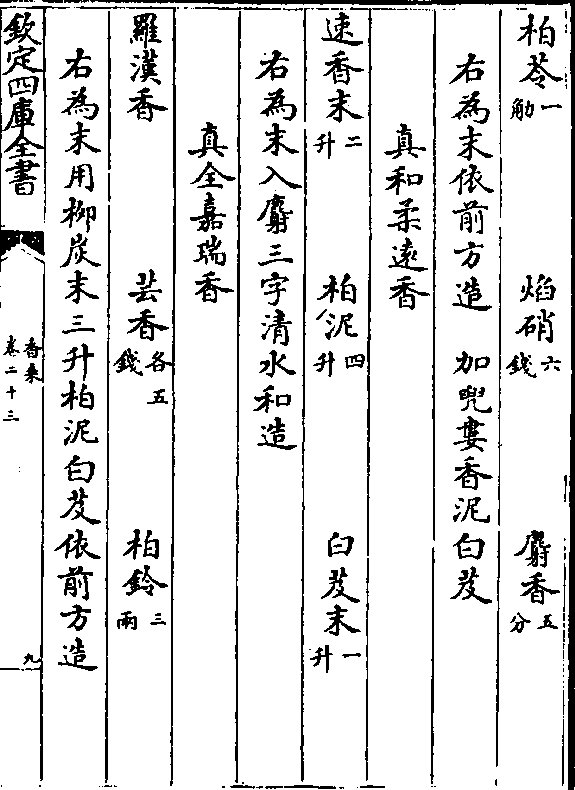 柏苓一觔　焰硝六錢　麝香五分
右為末依前方造　加兜婁香泥白芨
真和柔遠香
速香末二升　柏泥四升　白芨末一升
右為末入麝三字清水和造
真全嘉瑞香
羅漢香　芸香各五錢　柏鈴三兩
右為末用柳炭末三升柏泥白芨依前方造
欽定四庫全書　香乗　卷二十三　九